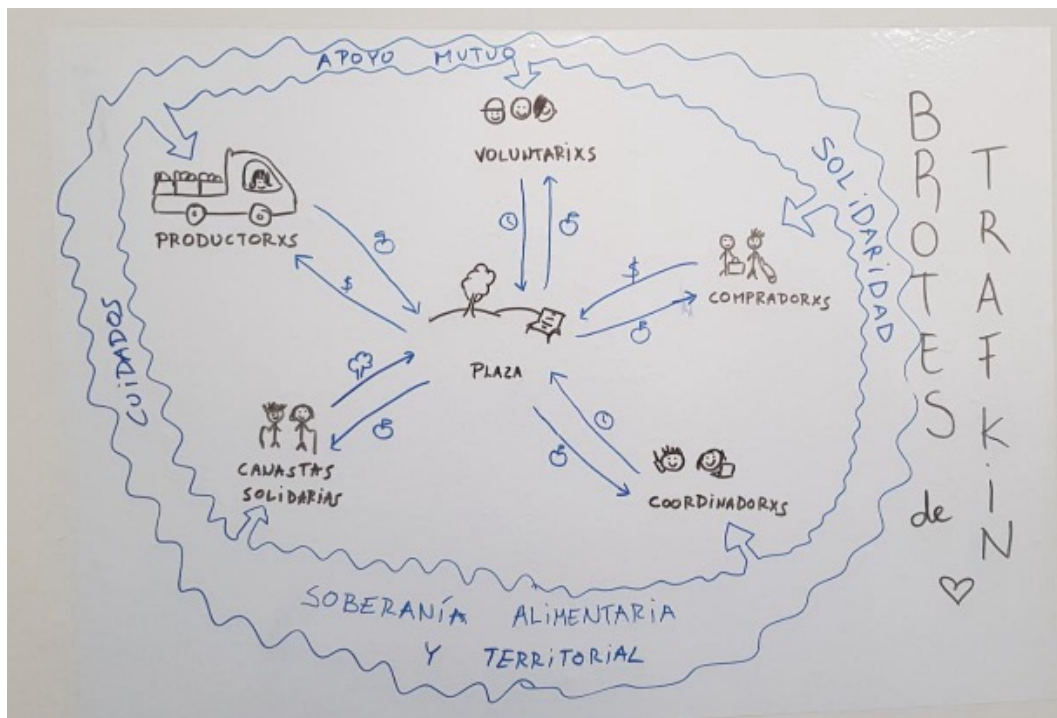 APOYO MUTUO
VOLUNTARIXS
PRODUCTORXS
$
$
COMPRADORXS
SOLIDARIDAD
CUIDADOS
PLAZA
CANASTAS
SOLIDARIAS
COORDINADORXS
SOBERANÍA ALIMENTARIA
Y TERRITORIAL
BROTES
de
TRAFKIN